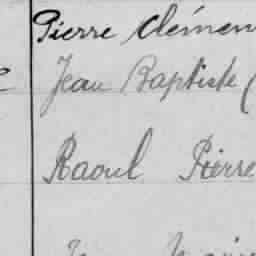 Pierre Clémen
Jean Baptiste (
Raoul Pierre